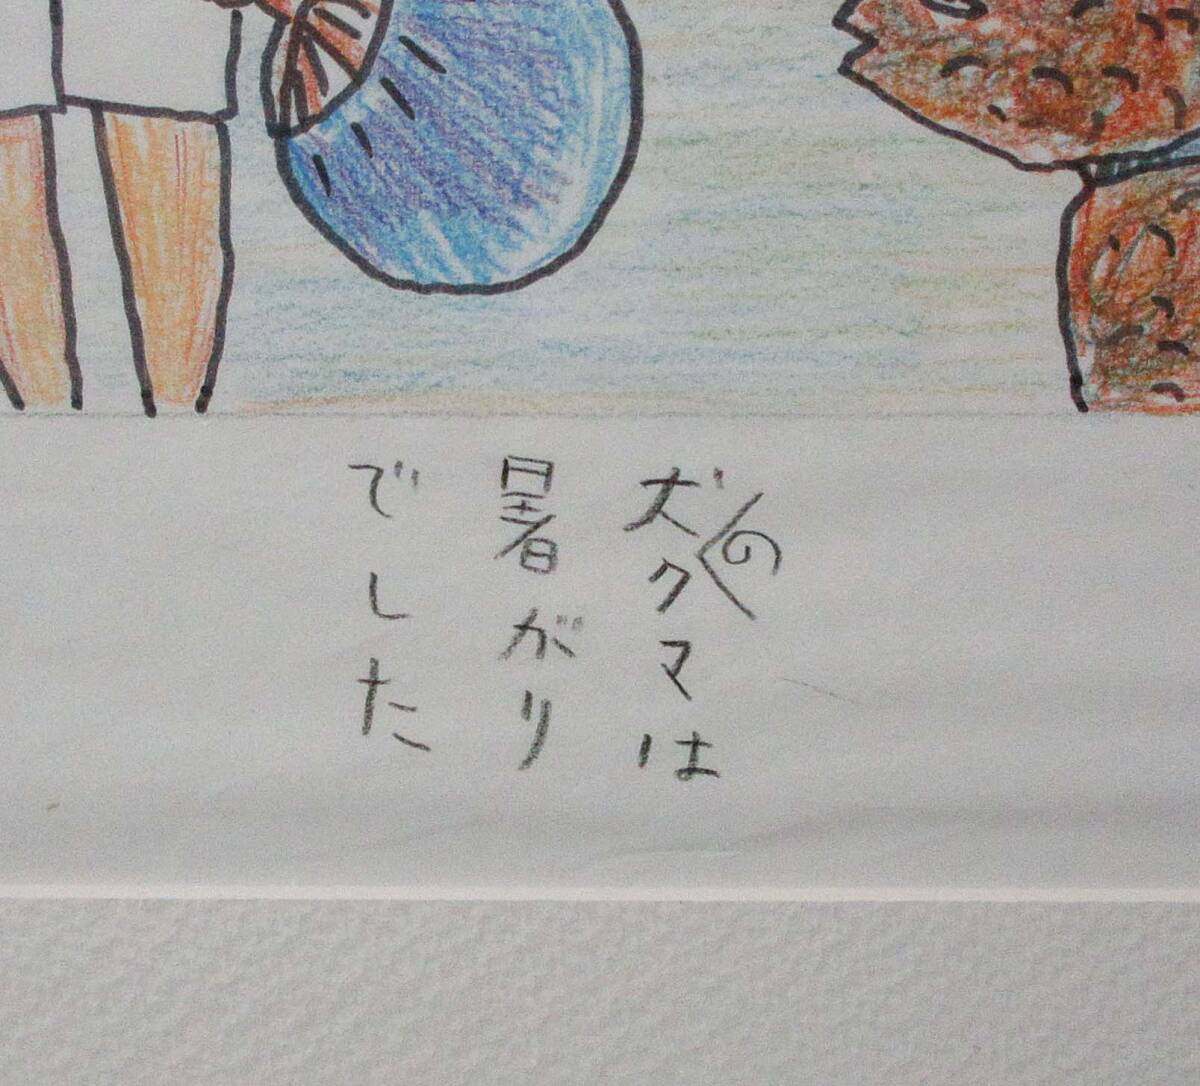 犬のクマは
暑がり
でした